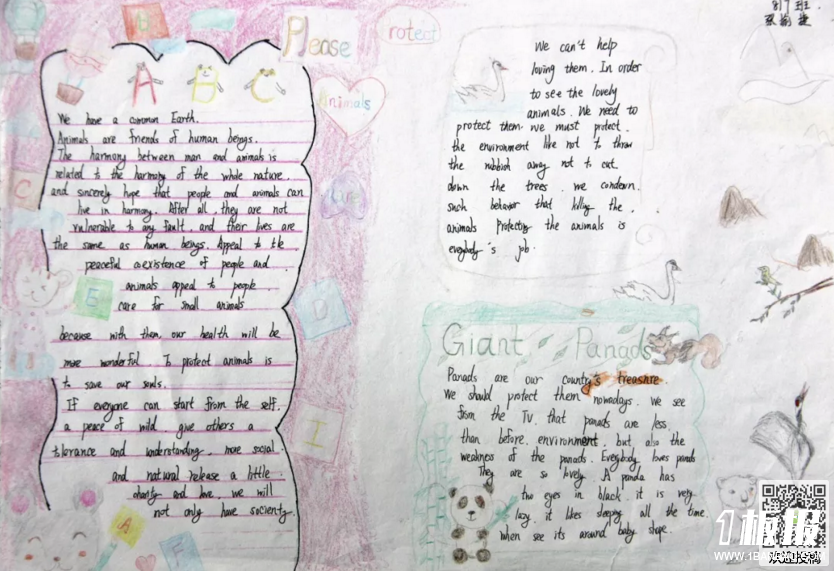 817班
Please
rotect
Animals
A B C
We have a common Earth.
Animals are friends of human beings.
The harmony between man and animals is
related to the harmony of the whole nature.
and sincerely hope that people and animals can
live in harmony. After all, they are not
vulnerable to any fault and their lives are
the same as human beings. Appeal to the
peaceful coexistence of people and
animals appeal to people
care for small animals
because with them, our health will be
more wonderful. To protect animals is
to save our souls.
If everyone can start from the self.
a peace of wild give others a
tolerance and understanding, more social
and natural release a little
charity and love, we will
not only have socienty
B
C
E
D
I
A
F
We can't help
loving them. In order
to see the lovely
animals. We need to
protect them. we must protect.
the environment like not to throw
the rubbish away not to cut
down the trees. we condemn.
such behavior that killing the.
animals Protecting the animals is
everybody's job.
Giant Panads
Panads are our country's treasure.
We should protect them nowadays. We see
from the TV. that panads are less
than before. environment. but also the
weakness of the panads. Everybody loves panads
They are so lovely. A panda has
the eyes in black. it is very
lazy. it likes sleeping all the time.
when see its around baby shape.
1板报
WWW.1BANBAO.COM